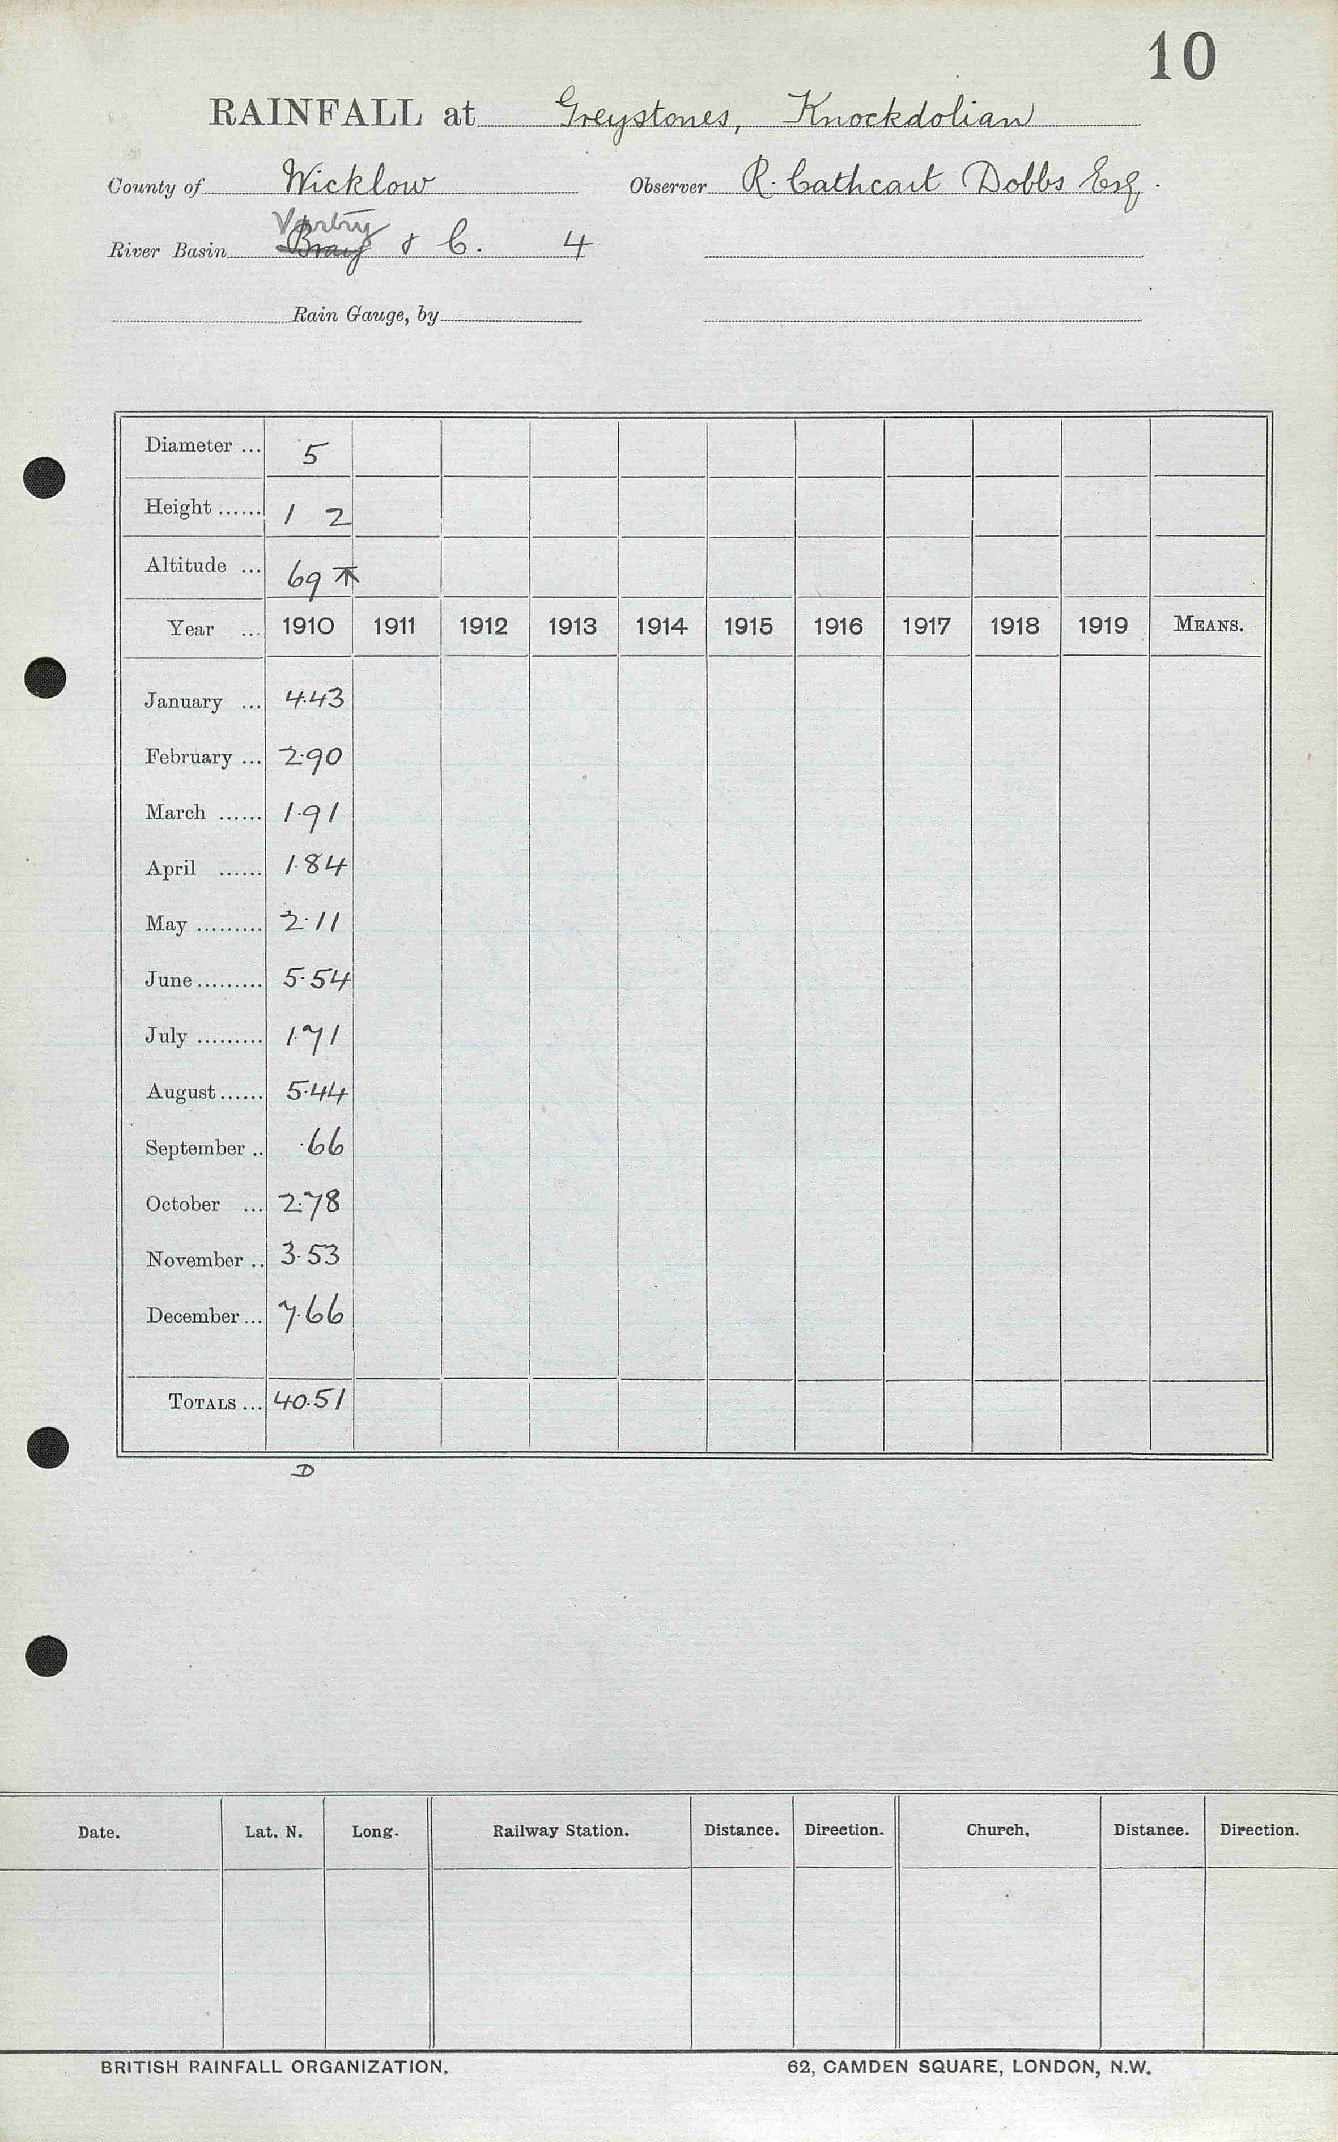 10
RAINFALL at Greystones, Knockdolian
County of Wicklow Observer R. Cathcart Dobbs Esq.
Vartry
River Basin Bray & C. 4
Rain Gauge, by
Diameter ... 5
Height ...... 1 2
Altitude ... 69
Year ... 1910 1911 1912 1913 1914 1915 1916 1917 1918 1919 MEANS.
January ... 4.43
February ... 2.90
March ...... 1.91
April ...... 1.84
May ......... 2.11
June ......... 5.54
July ......... 1.71
August ...... 5.44
September .. .66
October ... 2.78
November .. 3.53
December ... 7.66
TOTALS ... 40.51
D
Date. Lat. N. Long. Railway Station. Distance. Direction. Church. Distance. Direction.
BRITISH RAINFALL ORGANIZATION. 62, CAMDEN SQUARE, LONDON, N.W.